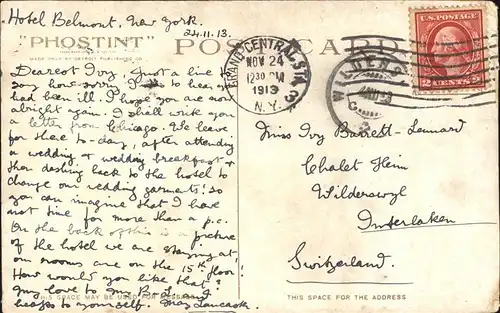 Hotel Belmont, New York.
24.11.13.
"PHOSTINT"
POST CARD
MADE ONLY BY DETROIT PUBLISHING CO.
Dearest Ivy. Just a line to
say how sorry I am to hear you
had been ill. I hope you are now
alright again. I shall write you
a letter from Chicago. We leave
for there to-day, after attending
a wedding, & wedding breakfast &
then dashing back to the hotel to
change our wedding garments! so
you can imagine that I have
not time for more than a p.c.
On the back of this is a picture
of the hotel we are staying at
our rooms are on the 15th floor!
How would you like that?
My love to Mrs B-L. and
heaps to yourself. May Lancaster.
THIS SPACE MAY BE USED FOR MESSAGE
GRAND CENTRAL STA.
NOV 24
1230 PM
1913
N.Y.
3
WILDERS
U.S. POSTAGE
2 CENTS 2
Miss Ivy Barrett-Lennard
Chalet Heim
Wilderswyl
Interlaken
Switzerland.
THIS SPACE FOR THE ADDRESS